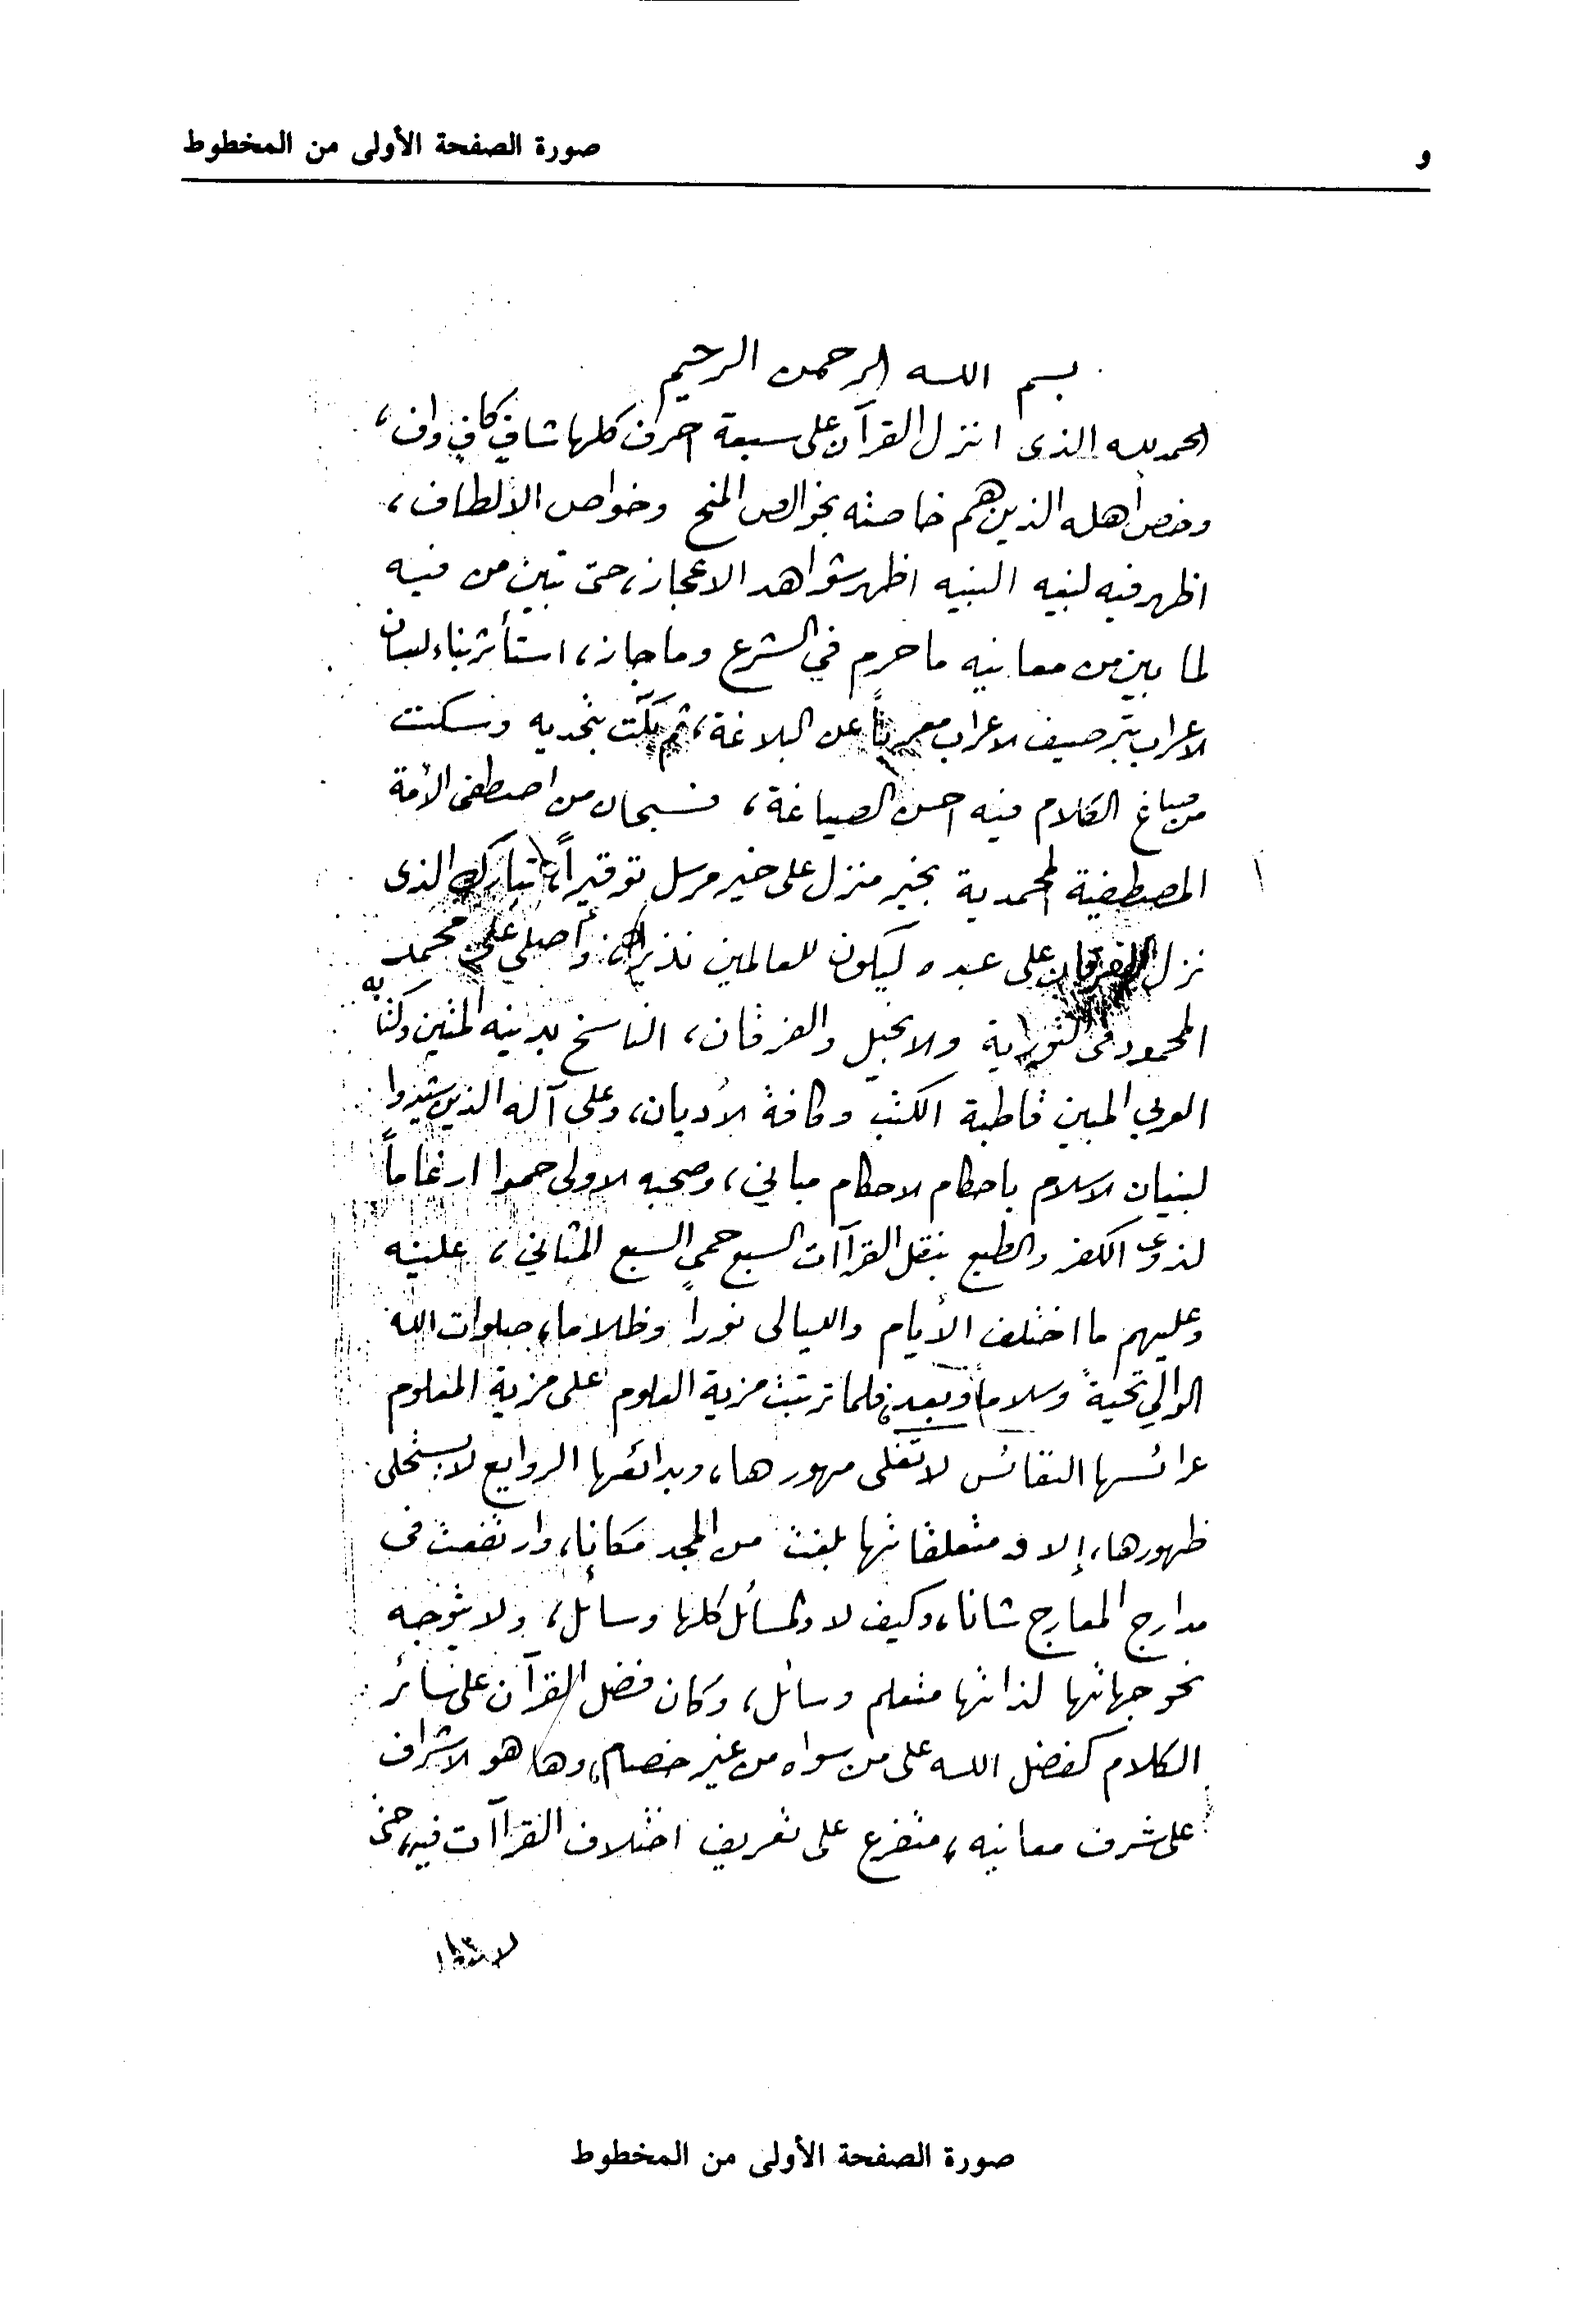 و
صورة الصفحة الأولى من المخطوط
بسم الله الرحمن الرحيم
الحمد لله الذى انزل القرآن على سبعة احرف كلها شاف كاف واف،
وخص أهله الذين هم خاصته بخوالص المنح وخواص الألطاف،
اظهر فيه لنبيه النبيه اظهر شواهد الاعجاز، حتى تبين من فيه
لما بين من معانيه ما حرم في الشرع وما جاز، استأثر بناء لسان
الاعراب بترصيف الاعراب معرباً عن البلاغة، ثم بكّت بتحديه وسكت
من صاغ الكلام فيه احسن الصياغة، فسبحان من اصطفى الأمة
المصطفية المحمدية بخير منزل على خير مرسل توقيراً، تبارك الذى
نزل الفرقان على عبده ليكون للعالمين نذيرا، وأصلي على محمد
المحمود فى التوراية والانجيل والفرقان، الناسخ بدينه المتين وكتابه
العربي المبين قاطبة الكتب وكافة الأديان، وعلى آله الذين شيدوا
لبنيان الاسلام باحكام الاحكام مباني، وصحبه الاولى حموا ارغاماً
لذوى الكفر والطبع بنقل القراآت السبع حمى السبع المثاني، علينه
وعليهم ما اختلف الأيام والليالى نوراً وظلاما، صلوات الله
الوالي تحية وسلاما، وبعد، فلما ترتبت مزية العلوم على مزية المعلوم
عرائسها النقائس لا تغلى مهورها، وبدائعها الروايع لا يستحلى
ظهورها، إلا ومتعلقاتها بلغت من المجد مكانا، وارتفعت فى
مدارج المعارج شانا، وكيف لا والمسائل كلها وسائل، ولا يتوجه
نحو جهاتها لذاتها متعلم وسائل، وكان فضل القرآن على سائر
الكلام كفضل الله على من سواه من غير خصام، وها هو الاشراف
على شرف معانيه، متفرع على تعريف اختلاف القراآت فيه، حتى
صورة الصفحة الأولى من المخطوط